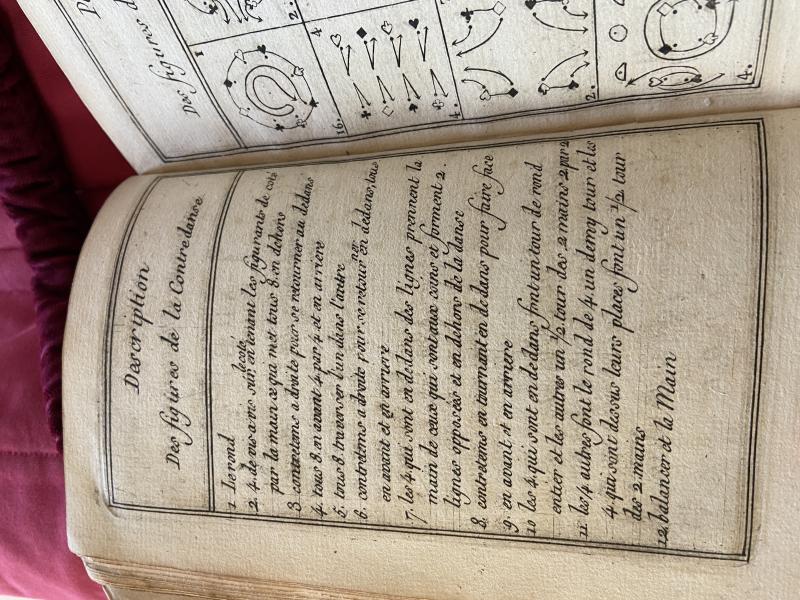 Description
Des figures de la Contredanse
1 Le rond
2. 4. de vis a vis sur le coté en tenant les figurants de coté
par la main ce qui met tous 8. en dehors
3. contretems a droite pour se retourner au dedans
4. tous 8. en avant 4 par 4 et en arriere
5. tous 8. traverser l'un dans l'autre
6. contretems a droite pour se retourner en dedans, tous
en avant et en arriere
7. les 4 qui sont en dedans des lignes prennent la
main de ceux qui sont aux coins et forment 2.
lignes opposées et en dehors de la danse
8. contretems en tournant en dedans pour faire face
9. en avant et en arriere
10 les 4. qui sont en dedans font un tour de rond
entier et les autres un 1/2 tour des 2 mains 2 par 2
11. les 4 autres font le rond de 4 un demy tour et les
4. qui sont dessus leurs places font un 1/2 tour
des 2 mains
12. balancer et la Main
Des figures d
1
2.
4
16.
4.
2.
4.